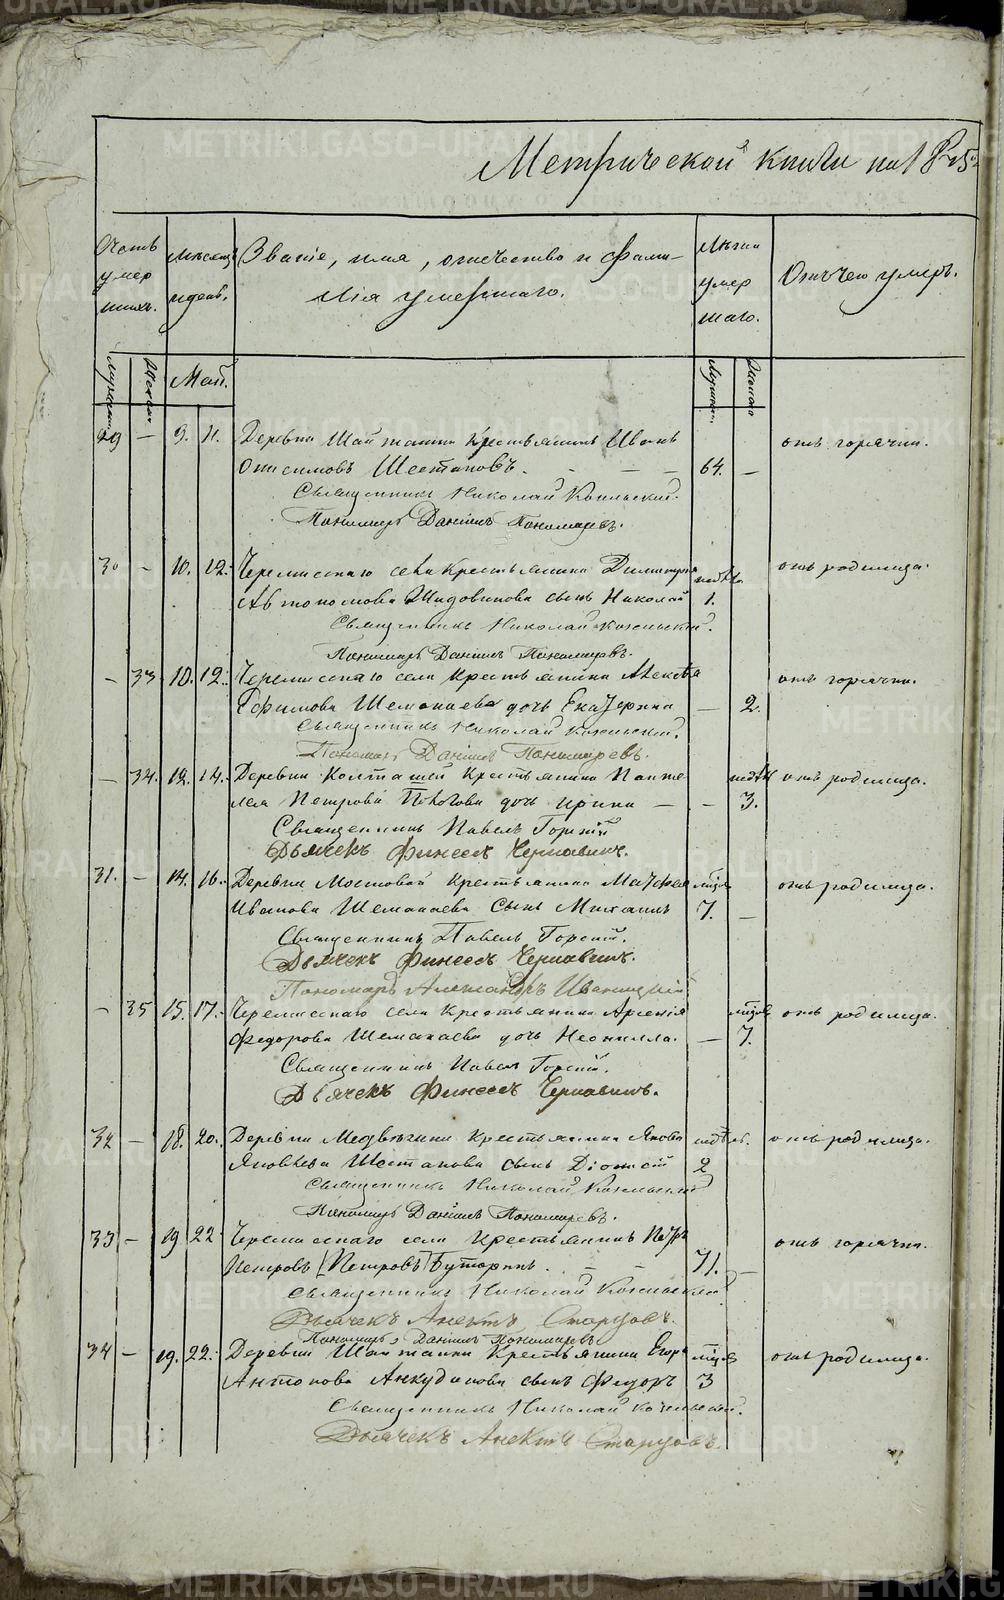 Метрической книги на 18
Счетъ умершихъ.
Мѣсяцъ и день.
Званіе, имя, отчество и фамилія умершаго.
Лѣта умершаго.
Отъ чего умеръ.
Май.
29 — 9. 11. Деревни Шайтанки Крестьянинъ Иванъ
Онисимовъ Шестаковъ. — — — 64. — отъ горячки.
Священникъ Николай
Пономарь Даніилъ Пономаревъ.
30 — 10. 12. Черемисскаго села Крестьянина Димитрія отъ родимца.
Автономова сынъ Николай 1.
Священникъ Николай
Пономарь Даніилъ Пономаревъ.
— 33 10. 12. Черемисскаго села Крестьянина Алексѣя отъ горячки.
Ефимова Шеманаева дочь Екатерина — 2.
Священникъ Николай
Пономарь Даніилъ Пономаревъ.
— 34. 12. 14. Деревни Колташей Крестьянина Панте отъ родимца.
лея Петрова дочь Ирина — — 3.
Священникъ Павелъ Горный
Дьячекъ Финеесъ Чернавинъ.
31. — 14. 16. Деревни Мостовой Крестьянина Матфея отъ родимца.
Иванова Шеманаева сынъ Михаилъ 7. —
Священникъ Павелъ Горный.
Дьячекъ Финеесъ Чернавинъ.
Пономарь Александръ
— 35 15. 17. Черемисскаго села Крестьянина Арсенія отъ родимца.
Федорова Шеманаева дочь Неонилла. — 7.
Священникъ Павелъ Горный.
Дьячекъ Финеесъ Чернавинъ.
32 — 18. 20. Деревни Крестьянина Якова отъ родимца.
Яковлева Шестакова сынъ Діомидъ 2
Священникъ Николай
Пономарь Даніилъ Пономаревъ.
33 — 19 22 Черемисскаго села Крестьянинъ Петръ отъ горячки.
Петровъ [Петровъ] Бутаринъ. — — 71. —
Священникъ Николай
Дьячекъ Старцовъ.
Пономарь Даніилъ Пономаревъ
34 — 19. 22. Деревни Шайтанки Крестьянина Егора отъ родимца.
Антонова Анкудинова сынъ Федоръ 3
Священникъ Николай
Дьячекъ Старцовъ.
METRIKI.GASO-URAL.RU